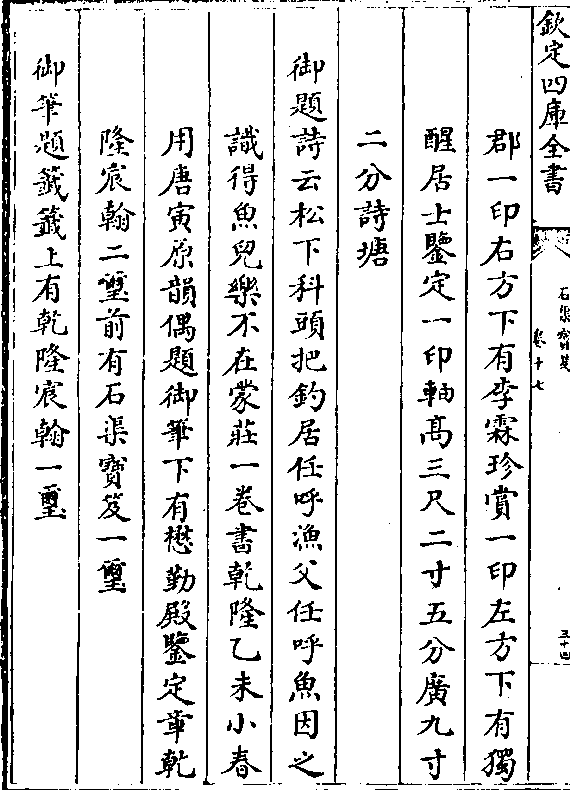 欽定四庫全書
石渠寶笈
卷十七
三十四
郡一印右方下有李霖珍賞一印左方下有獨
醒居士鑒定一印軸髙三尺二寸五分廣九寸
二分詩塘
御題詩云松下科頭把釣居任呼漁父任呼魚因之
識得魚兒樂不在蒙莊一卷書乾隆乙未小春
用唐寅原韻偶題御筆下有懋勤殿鑒定章乾
隆宸翰二璽前有石渠寶笈一璽
御筆題籤籤上有乾隆宸翰一璽